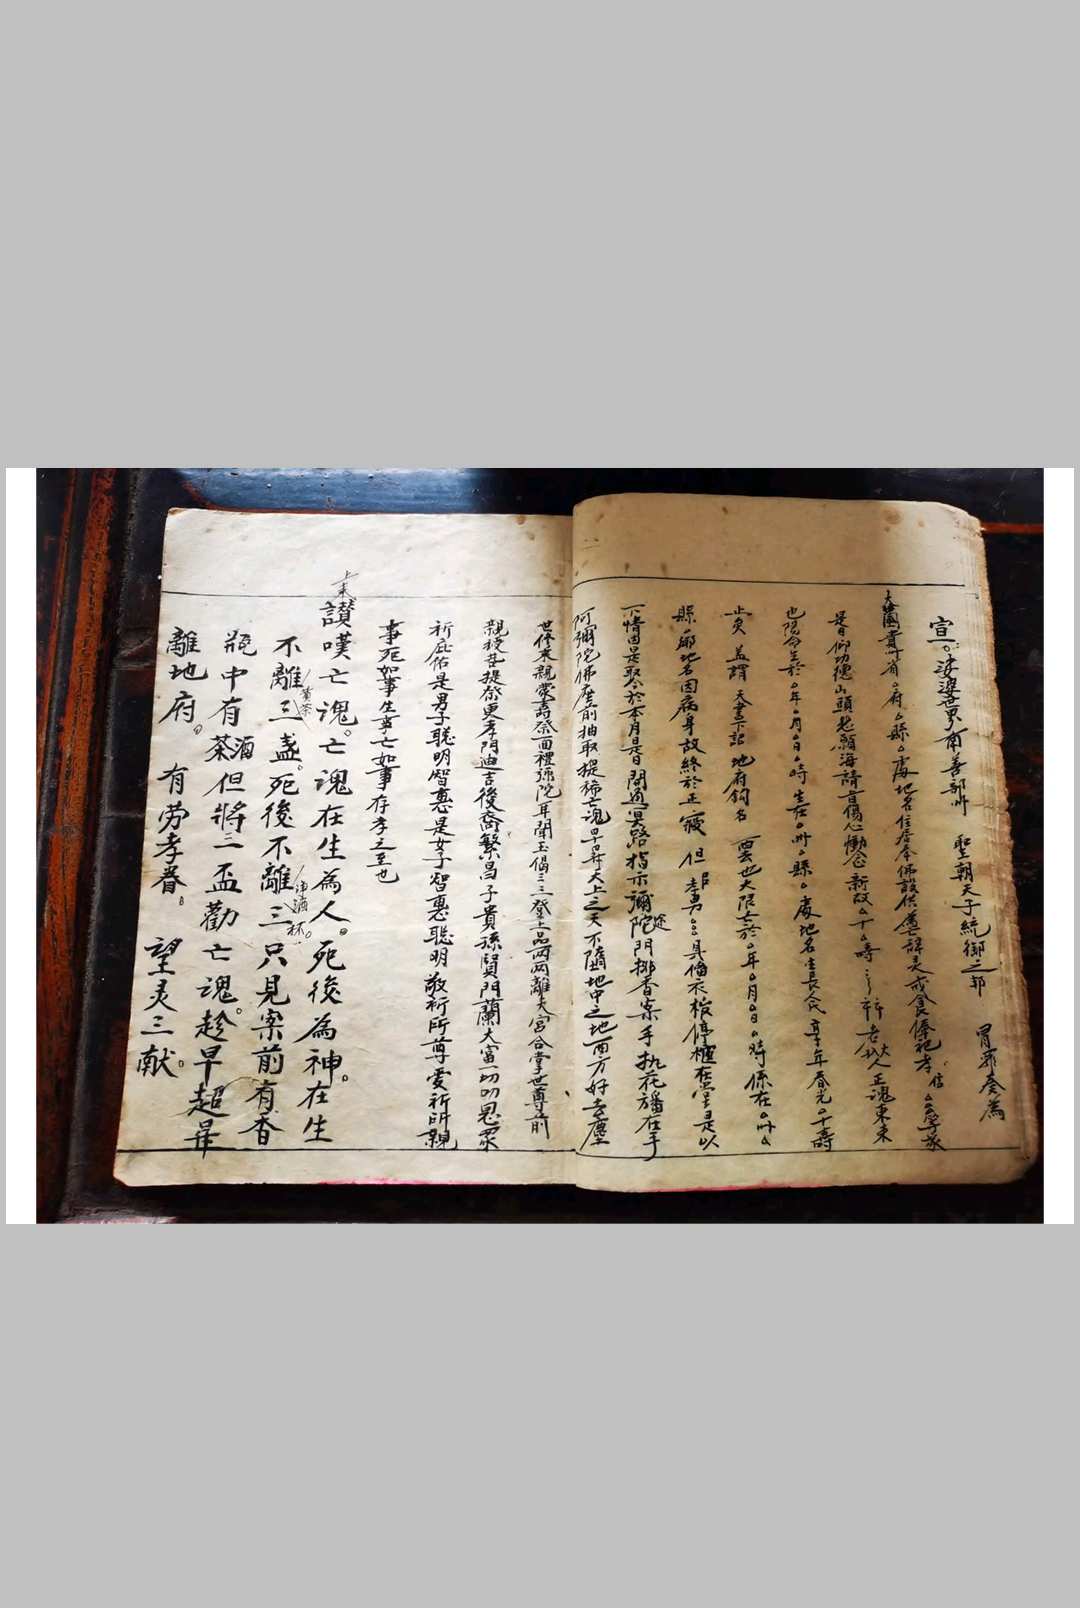 宣。娑婆世界南善部州 聖朝天子統御之邦 冐罪奏為
大國貴州省。府。縣。處地名住居奉佛設供薦辞灵戒食俸祀孝信。。孝家
是日仰功德山頭起願海請言傷心慟念 新故。十。時 老大人正魂東來
也陽命生於。年。月。日。時生在。州。縣。處地名生長人氏 享年春光。十壽
止矣 盖謂 天書下詔 地府鈎名 云也大限去於。年。月。日。時係在。州。
縣。鄉地名因病身故終於正寢 但報孝男。。。具俻衣棺停柩在堂是以
下情因是取今於本月是日開通冥路指示彌陀門排香案手执花旛在手
阿彌陀佛座前抽取提移亡魂早早昇大上之天不墮地中之地西方好去塵
世倖來親蒙壽祭面禮彌陀耳聞玉偈三三登上品两两離天宮合掌世尊前
親授菩提祭更孝門迪吉後裔繁昌子貴孫賢門蘭大富一切叨恩眾
祈庇佑是男子聰明智惠是女子智惠聰明敬祈所尊愛祈所親
事死如事生事亡如事存孝之至也
讃嘆亡魂。亡魂在生為人。死後為神。在生
不離三盞。死後不離三杯。只見案前有香
瓶中有茶酒但將二盃勸亡魂。趁早超昇
離地府。 有劳孝眷。 望灵三献。